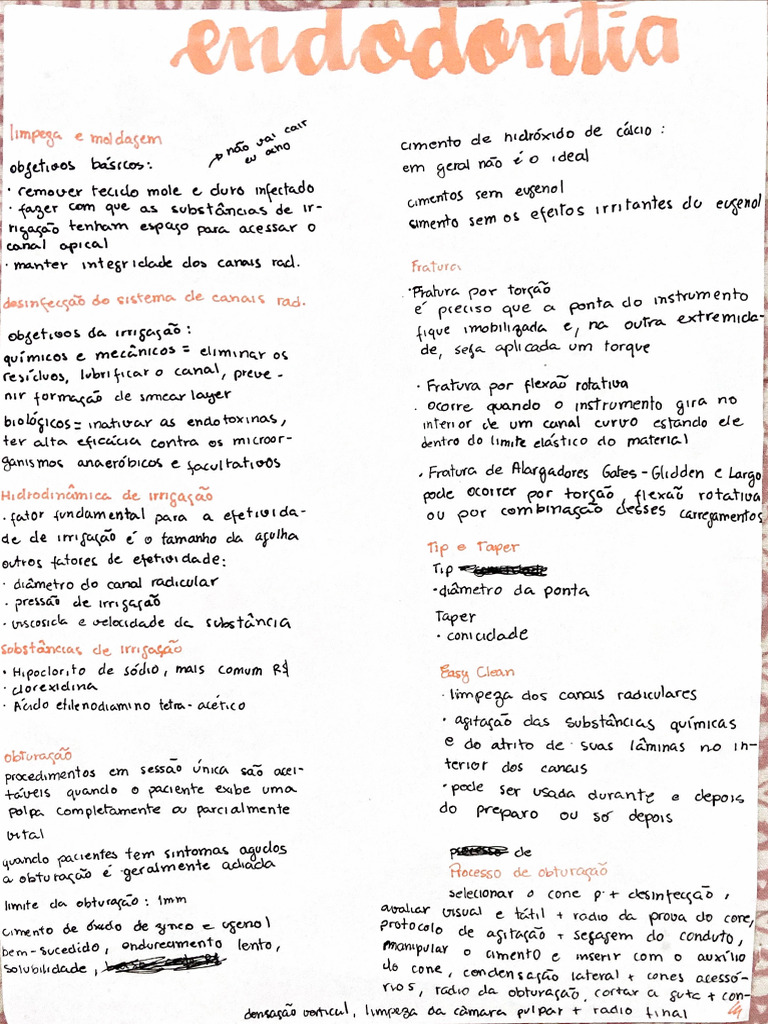 endodontia
limpeza e moldagem
não vai cair
eu acho
objetivos básicos:
• remover tecido mole e duro infectado
• fazer com que as substâncias de ir-
rigação tenham espaço para acessar o
canal apical
• manter integridade dos canais rad.
desinfecção do sistema de canais rad.
objetivos da irrigação:
químicos e mecânicos = eliminar os
resíduos, lubrificar o canal, preve-
nir formação de smear layer
biológicos = inativar as endotoxinas,
ter alta eficácia contra os microor-
ganismos anaeróbicos e facultativos
Hidrodinâmica de irrigação
• fator fundamental para a efetivida-
de de irrigação é o tamanho da agulha
outros fatores de efetividade:
• diâmetro do canal radicular
• pressão de irrigação
• viscosida e velocidade da substância
Substâncias de irrigação
• Hipoclorito de sódio, mais comum R$
• clorexidina
• Ácido etilenodiamino tetra-acético
obturação
procedimentos em sessão única são acei-
táveis quando o paciente exibe uma
polpa completamente ou parcialmente
vital
quando pacientes tem sintomas agudos
a obturação é geralmente adiada
limite da obturação: 1mm
cimento de óxido de zinco e ugenol
bem-sucedido, endurecimento lento,
solubilidade,
cimento de hidróxido de cálcio:
em geral não é o ideal
cimentos sem eugenol
simento sem os efeitos irritantes do eugenol
Fratura
• Fratura por torção
é preciso que a ponta do instrumento
fique imobilizada e, na outra extremida-
de, seja aplicada um torque
• Fratura por flexão rotativa
• ocorre quando o instrumento gira no
interior de um canal curvo estando ele
dentro do limite elástico do material
• Fratura de Alargadores Gates-Glidden e Largo
pode ocorrer por torção, flexão rotativa
ou por combinação desses carregamentos
Tip e Taper
Tip
• diâmetro da ponta
Taper
• conicidade
Easy Clean
• limpeza dos canais radiculares
• agitação das substâncias químicas
e do atrito de suas lâminas no in-
terior dos canais
• pode ser usada durante e depois
do preparo ou só depois
de
Processo de obturação
selecionar o cone p + desinfecção,
avaliar visual e tátil + radio da prova do cone,
protocolo de agitação + segagem do conduto,
manipular o cimento e inserir com o auxílio
do cone, condensação lateral + cones acessó-
rios, radio da obturação, cortar a guta + con-
densação vertical, limpeza da câmara pulpar + radio final